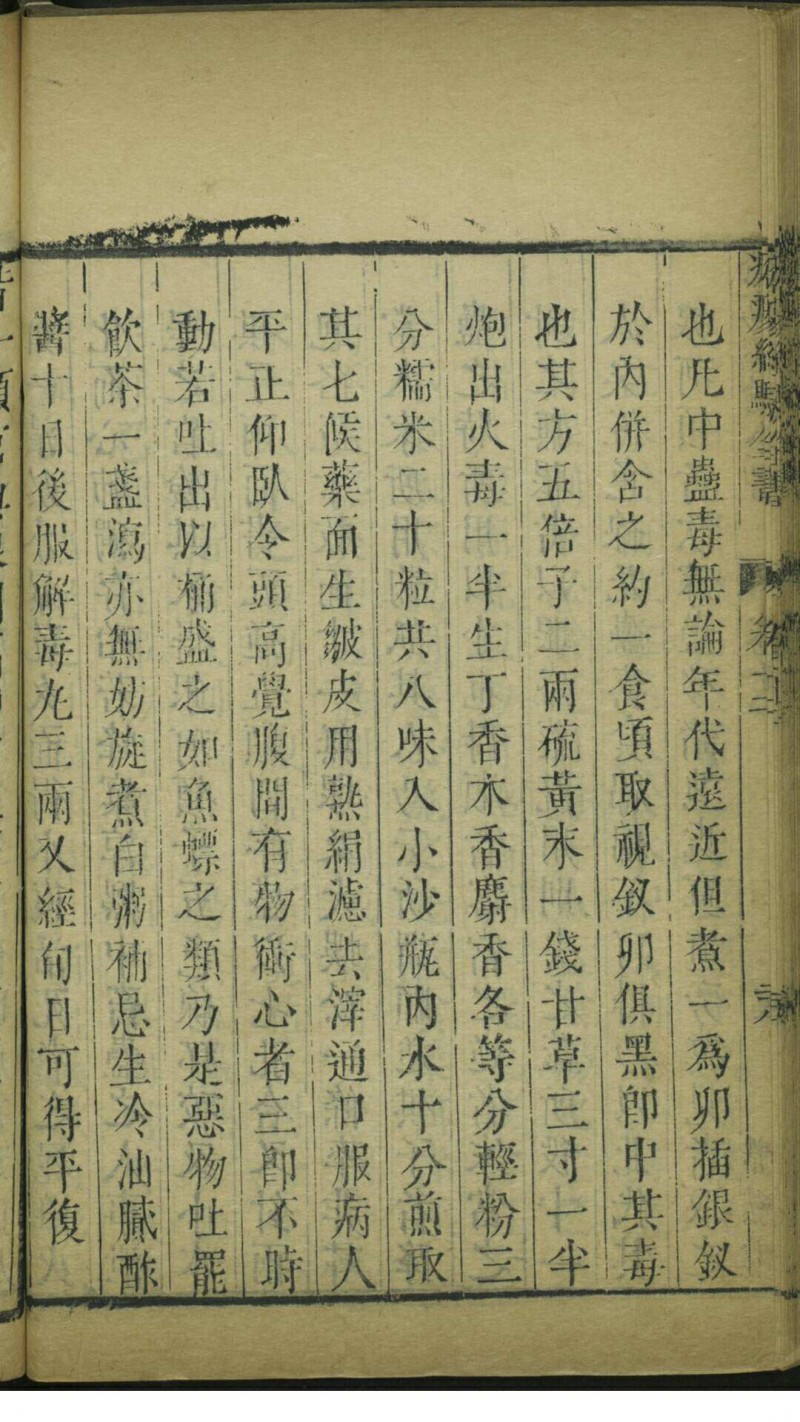 瘍經驗全書 卷二
也凡中蠱毒無論年代遠近但煮一爲卵插銀釵
於內併含之約一食頃取視釵卵俱黑卽中其毒
也其方五倍子二兩硫黃末一錢甘草三寸一半
炮出火毒一半生丁香木香麝香各等分輕粉三
分糯米二十粒共八味入小沙瓶內水十分煎取
其七候藥面生皺皮用熟絹濾去滓通口服病人
平正仰臥令頭高覺腹間有物衝心者三卽不時
動若吐出以桶盛之如魚螵之類乃是惡物吐罷
飲茶一盞瀉亦無妨旋煮白粥補忌生冷油膩酢
醬十日後服解毒丸三兩又經旬日可得平復